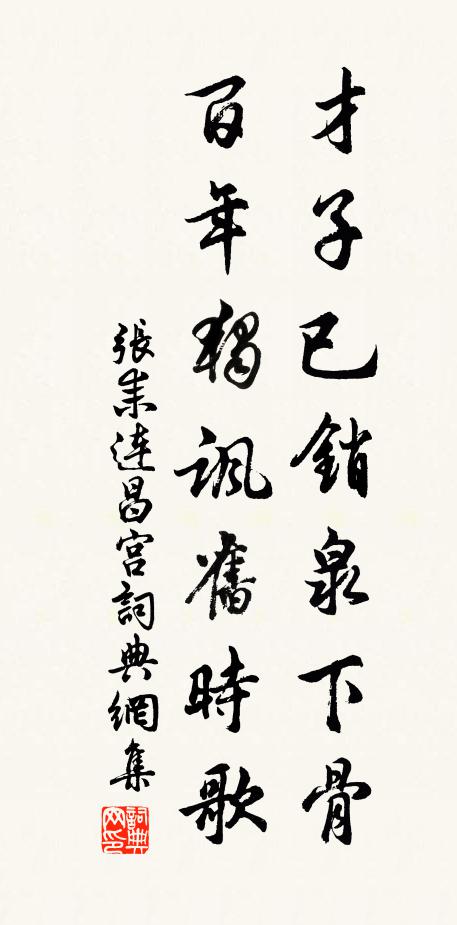 才子已銷泉下骨
百年獨諷舊時歌
張耒連昌宮詞典網集
詞典网印